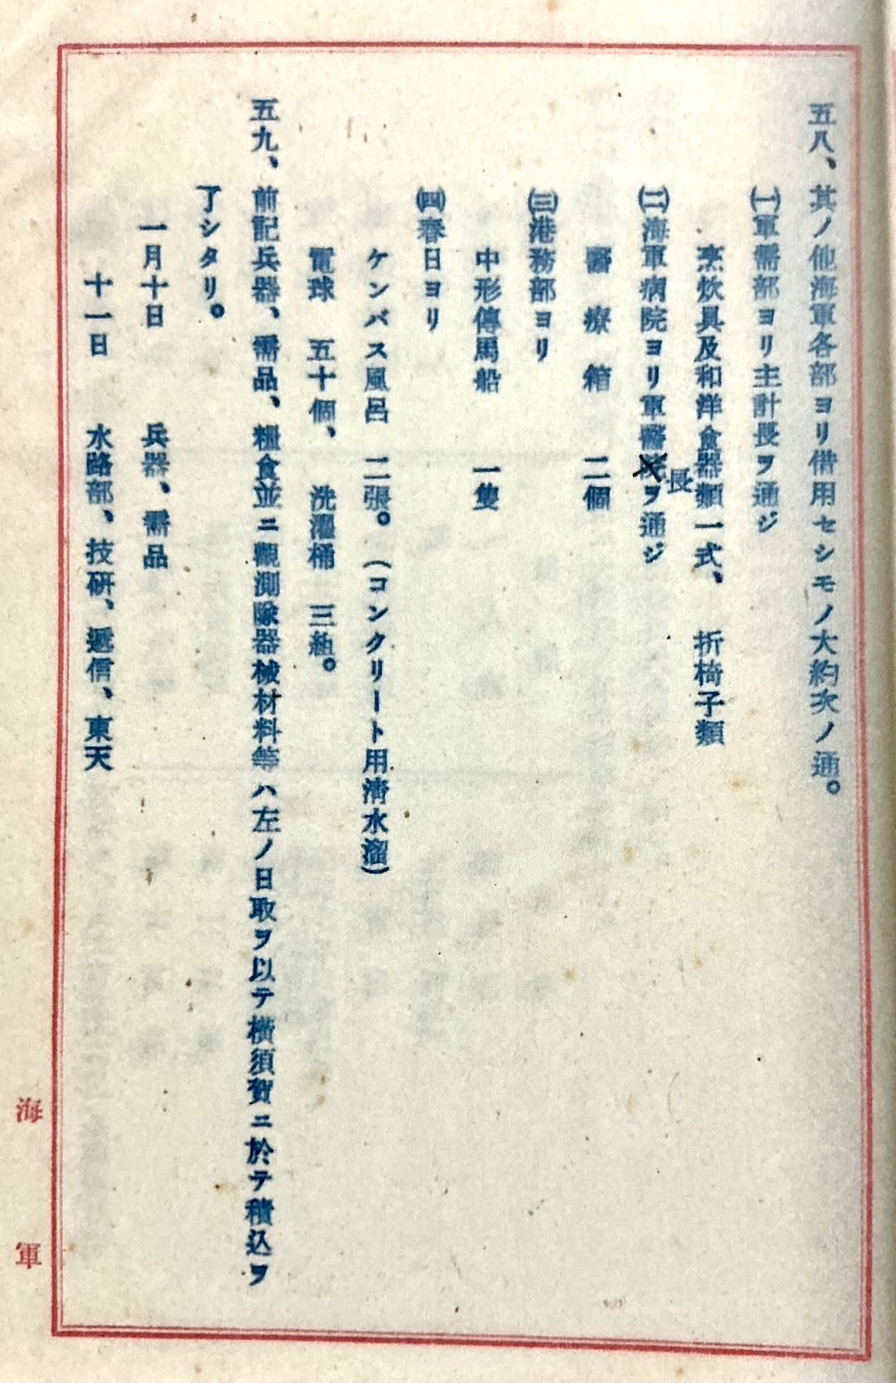 五八、其ノ他海軍各部ヨリ借用セシモノ大約次ノ通。
㈠軍需部ヨリ主計長ヲ通ジ
烹炊具及和洋食器類一式、折椅子類
㈡海軍病院ヨリ軍醫長ヲ通ジ
醫療箱 二個
㈢港務部ヨリ
中形傳馬船 一隻
㈣春日ヨリ
ケンバス風呂 二張。(コンクリート用清水溜)
電球 五十個、洗濯桶 三組。
五九、前記兵器、需品、糧食並ニ觀測隊器械材料等ハ左ノ日取ヲ以テ横須賀ニ於テ積込ヲ
了シタリ。
一月十日 兵器、需品
十一日 水路部、技研、遞信、東天
海軍